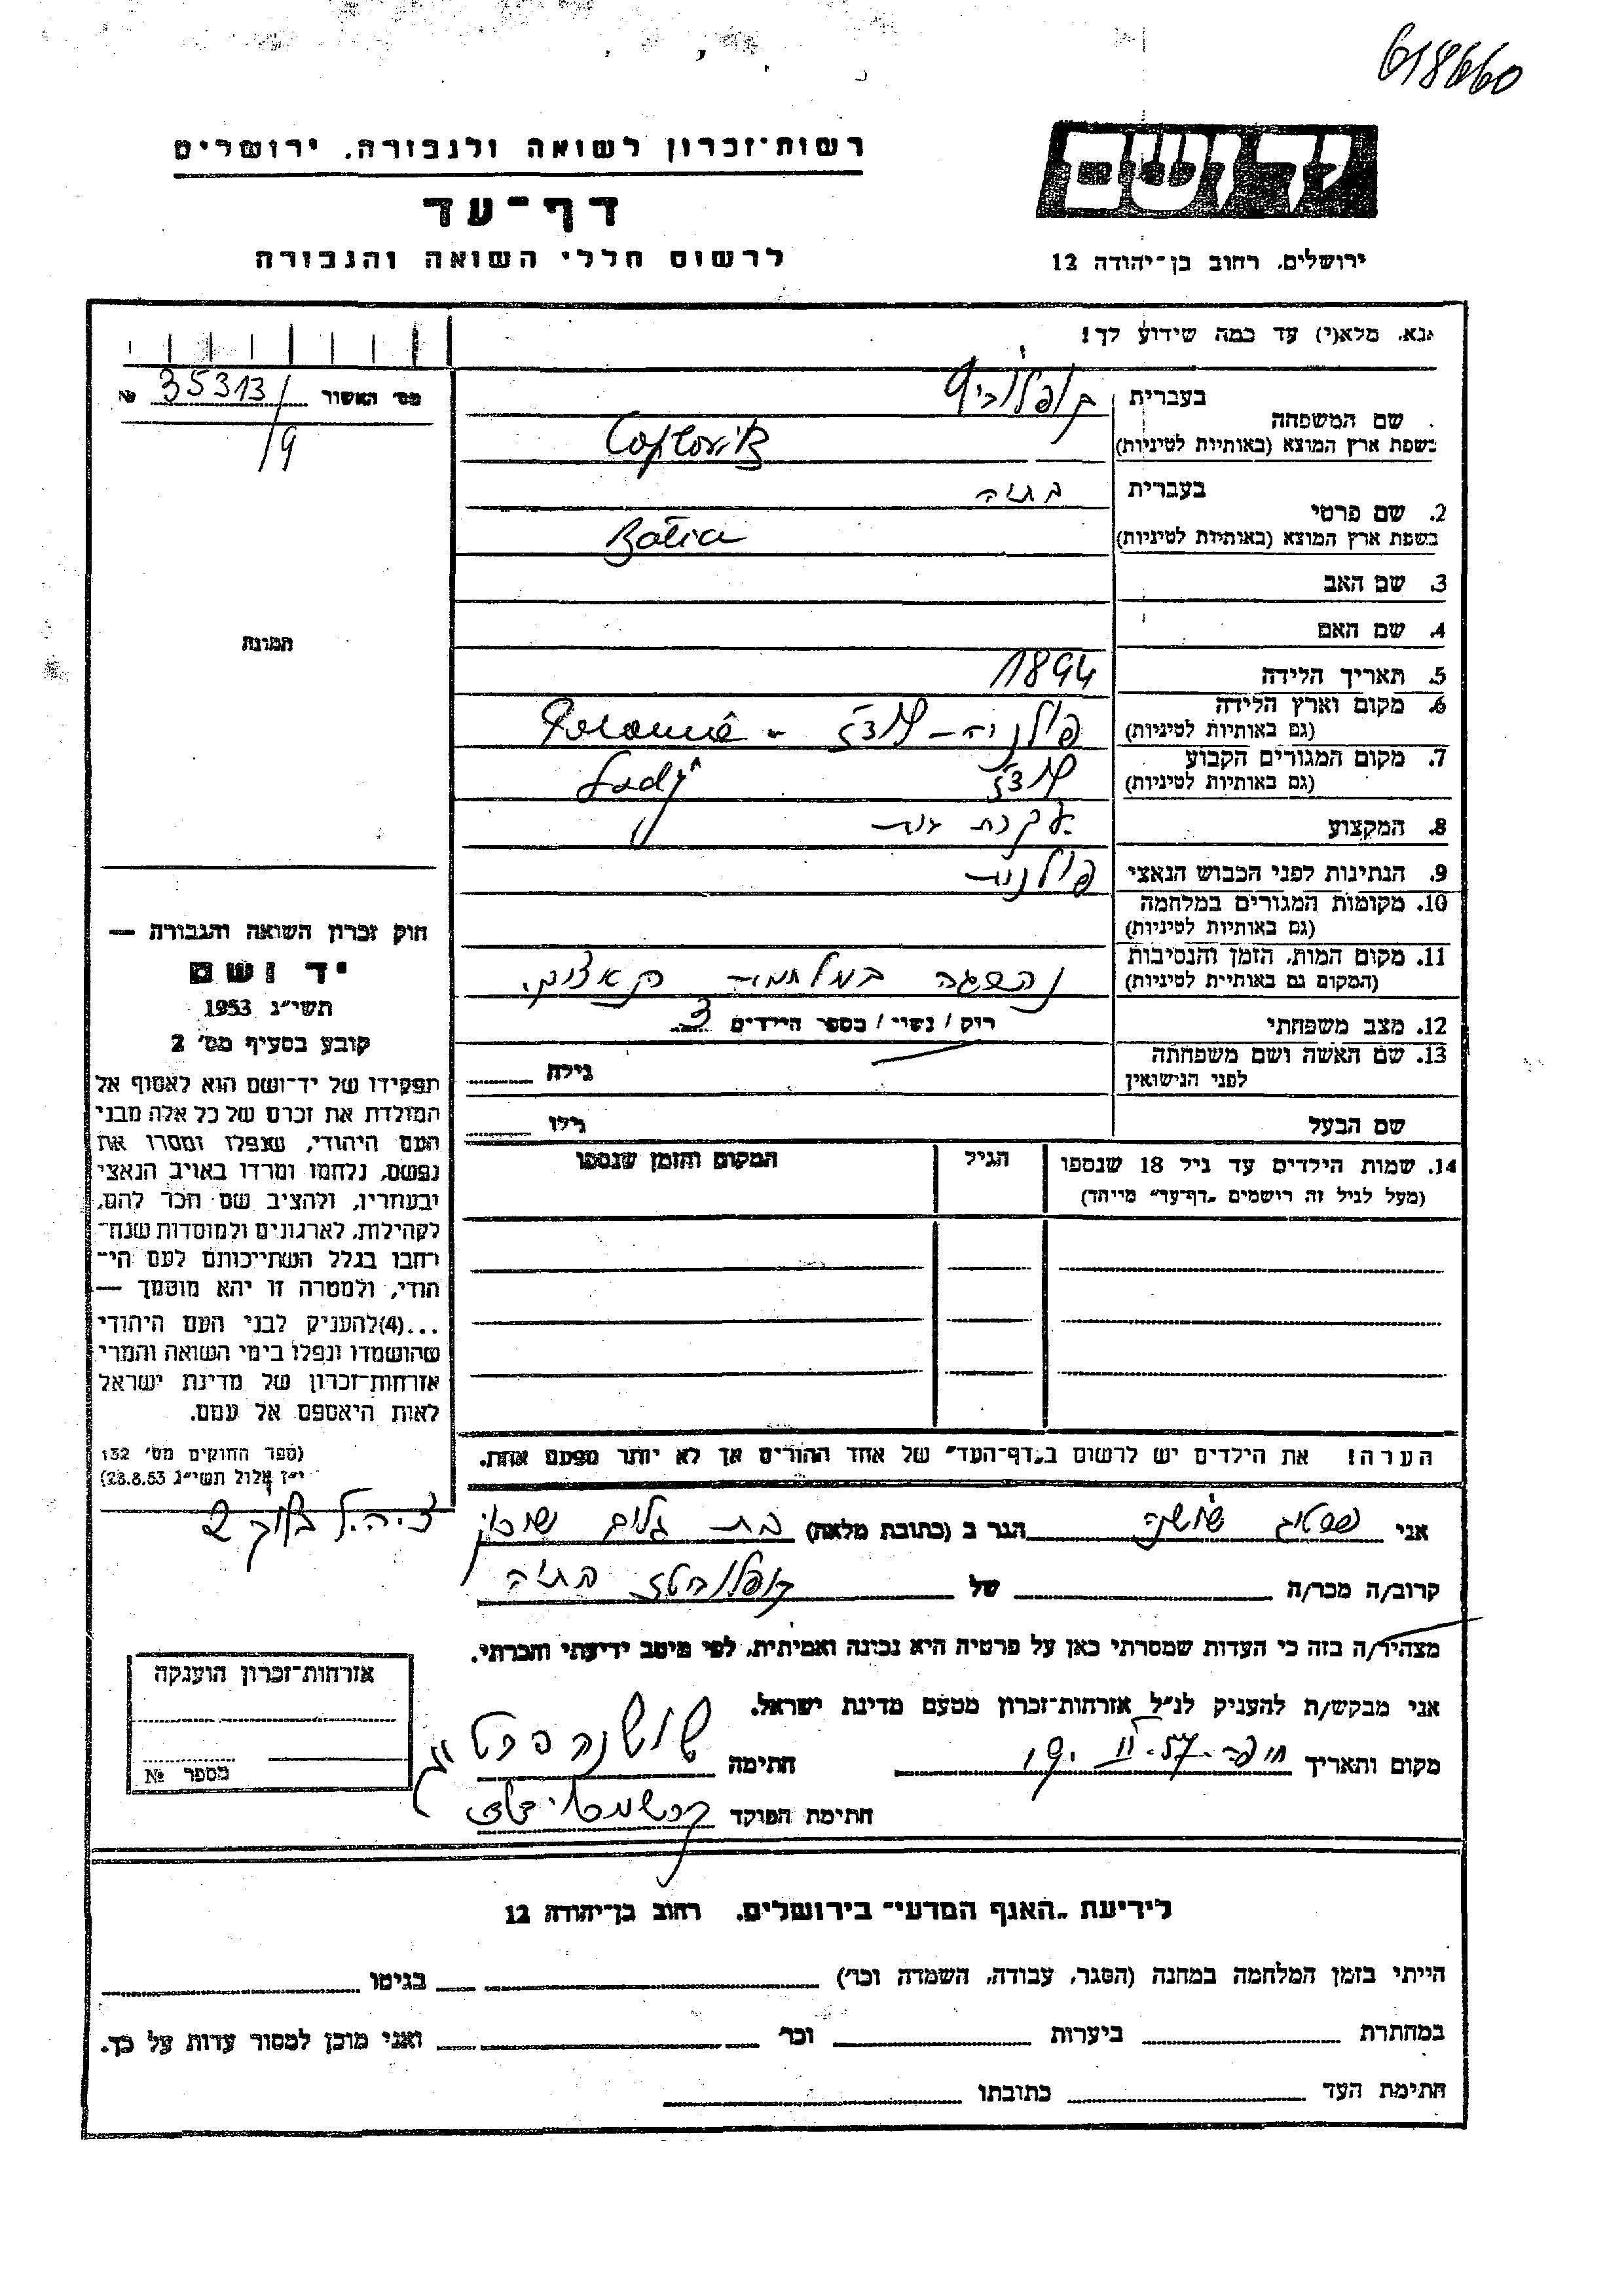 618660
רשות־זכרון לשואה ולגבורה. ירושלים
דף־עד
לרשום חללי השואה והגבורה
יד ושם
ירושלים. רחוב בן־יהודה 12
נא. מלא(י) עד כמה שידוע לך!
מס׳ האשור 35313 №
/9
בעברית
שם המשפחה
בשפת ארץ המוצא (באותיות לטיניות)
בעברית בתיה
2. שם פרטי
בשפת ארץ המוצא (באותיות לטיניות) Batia
3. שם האב
4. שם האם
תמונה
5. תאריך הלידה 1894
6. מקום וארץ הלידה
(גם באותיות לטיניות) פולניה - לודז׳
7. מקום המגורים הקבוע
(גם באותיות לטיניות) לודז׳ Lodz
8. המקצוע עקרת בית
9. הנתינות לפני הכבוש הנאצי פולנית
10. מקומות המגורים במלחמה
(גם באותיות לטיניות)
11. מקום המות, הזמן והנסיבות
(המקום גם באותיות לטיניות) נהרגה במלחמת
12. מצב משפחתי רווק / נשוי / מספר הילדים 3
13. שם האשה ושם משפחתה
לפני הנישואין גילה
שם הבעל גילו
14. שמות הילדים עד גיל 18 שנספו הגיל המקום והזמן שנספו
(מעל לגיל זה רישמים „דף־עד״ מייחד)
חוק זכרון השואה והגבורה —
יד ושם
תשי״ג 1953
קובע בסעיף מס׳ 2
תפקידו של יד־ושם הוא לאסוף אל
המולדת את זכרם של כל אלה מבני
העם היהודי, שנפלו ומסרו את
נפשם, נלחמו ומרדו באויב הנאצי
ובעוזריו, ולהציב שם וזכר להם,
לקהילות, לארגונים ולמוסדות שנח־
רחבו בגלל השתייכותם לעם הי־
הודי, ולמטרה זו יהא מוסמך —
...(4)להעניק לבני העם היהודי
שהושמדו ונפלו בימי השואה והמרי
אזרחות־זכרון של מדינת ישראל
לאות היאספם אל עמם.
(ספר החוקים מס׳ 132
י״ז אלול תשי״ג 28.8.53)
הערה! את הילדים יש לרשום ב„דף־העד״ של אחד ההורים אך לא יותר מפעם אחת.
אני שושנה הגר ב (כתובת מלאה) בת גלים שיכון
צ.ה.ל בלוק 2
קרוב/ה מכר/ה של בתיה
מצהיר/ה בזה כי העדות שמסרתי כאן על פרטיה היא נכונה ואמיתית, לפי מיטב ידיעתי והכרתי.
אני מבקש/ת להעניק לנ״ל אזרחות־זכרון מטעם מדינת ישראל.
מקום ותאריך חיפה 19.II.57 חתימה שושנה
חתימת הפוקד
אזרחות־זכרון הוענקה
מספר №
לידיעת „האגף המדעי״ בירושלים. רחוב בן־יהודה 12
הייתי בזמן המלחמה במחנה (הסגר, עבודה, השמדה וכר׳) בגיטו
במחתרת ביערות וכר׳ ואני מוכן למסור עדות על כך.
חתימת העד כתובתו